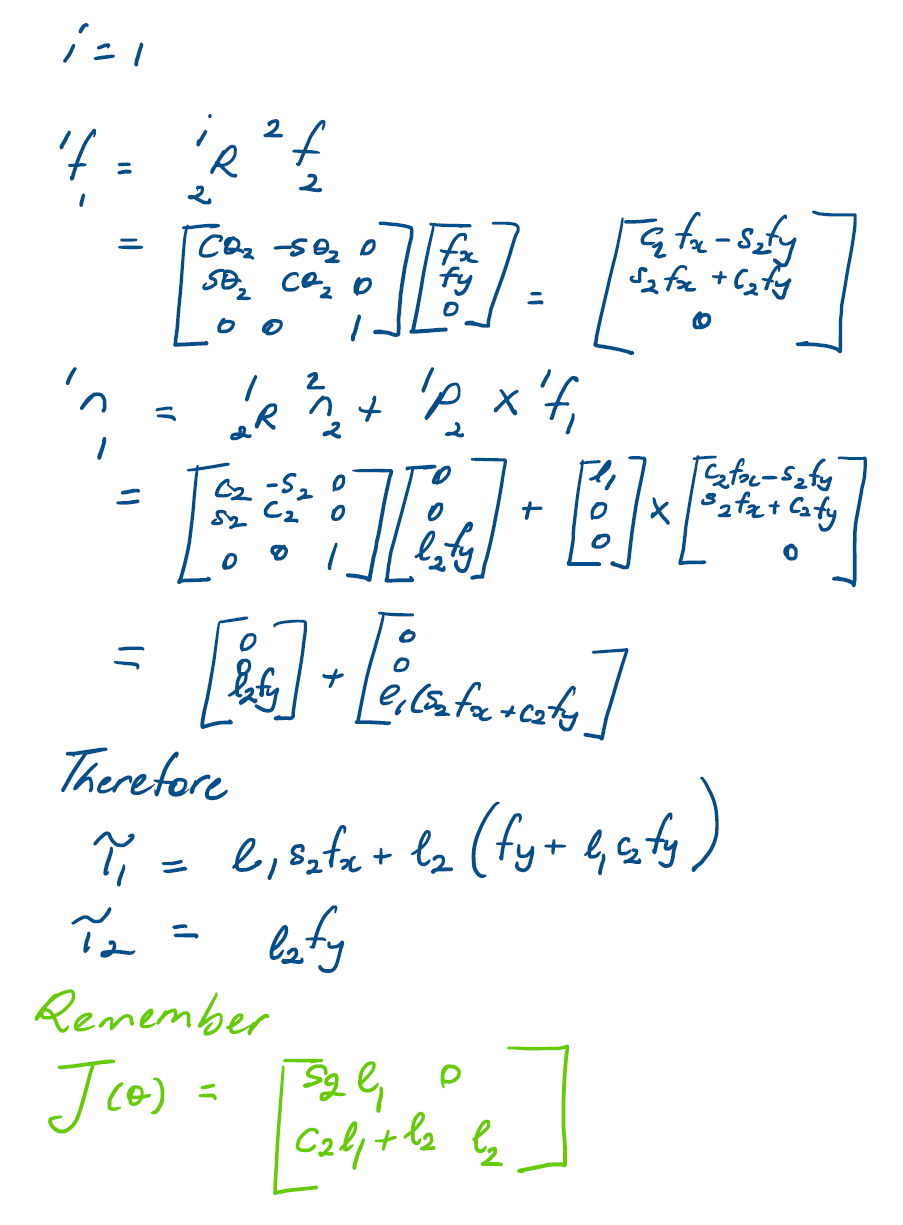 i = 1
¹f₁ = ⁱ₂R ²f₂
= [cθ₂ -sθ₂ 0; sθ₂ cθ₂ 0; 0 0 1] [fx; fy; 0] = [c₂ fx - s₂fy; s₂ fx + c₂fy; 0]
¹n₁ = ¹₂R ²n₂ + ¹P₂ × ¹f₁
= [c₂ -s₂ 0; s₂ c₂ 0; 0 0 1] [0; 0; l₂fy] + [l₁; 0; 0] × [c₂fx - s₂fy; s₂fx + c₂fy; 0]
= [0; 0; l₂fy] + [0; 0; l₁(s₂fx + c₂fy]
Therefore
τ₁ = l₁s₂fx + l₂ (fy + l₁c₂fy)
τ₂ = l₂fy
Remember
J(θ) = [s₂l₁ 0; c₂l₁ + l₂ l₂]